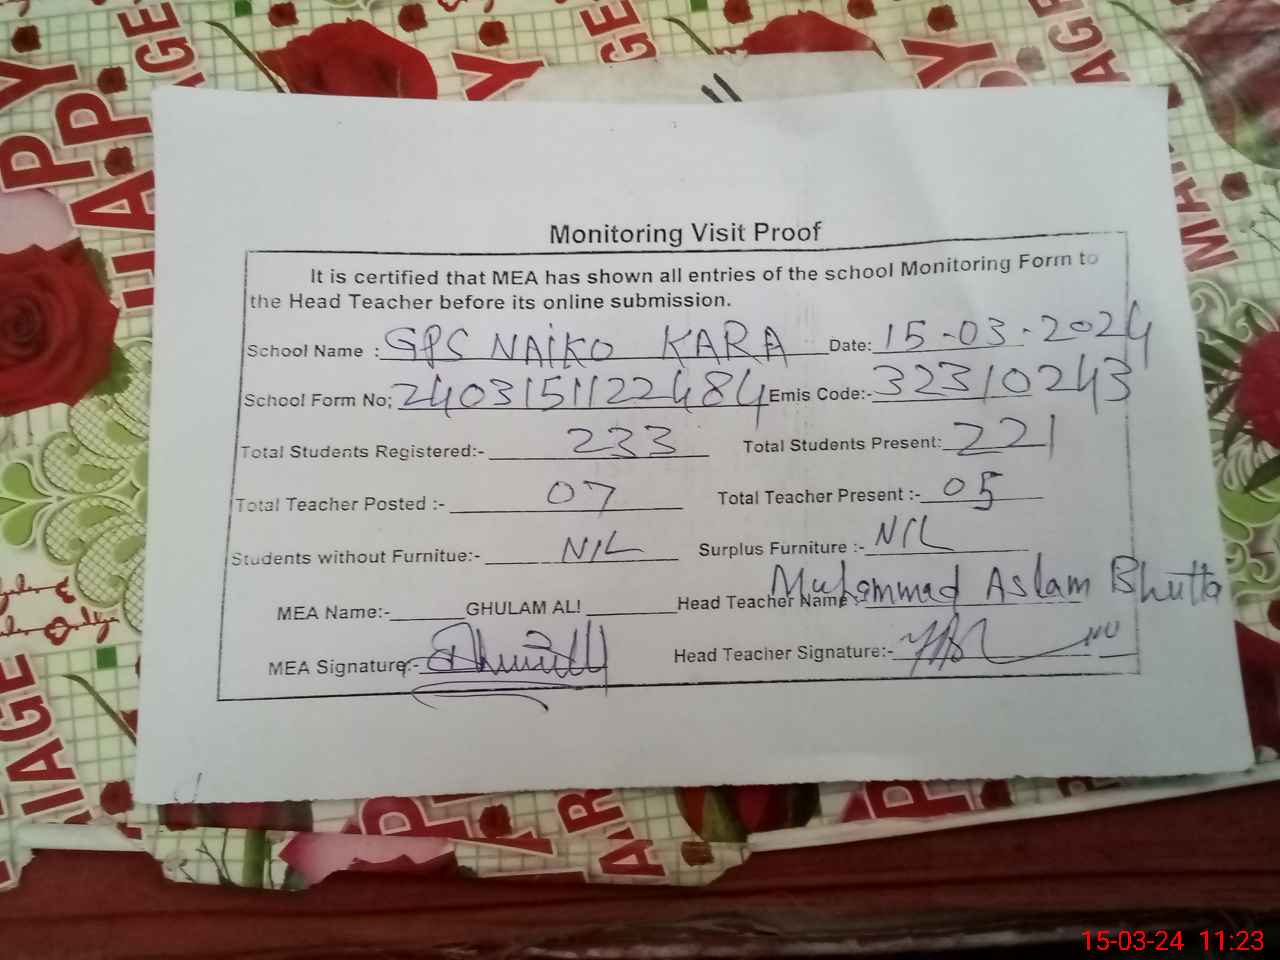 Monitoring Visit Proof
It is certified that MEA has shown all entries of the school Monitoring Form to
the Head Teacher before its online submission.
School Name :GPS NAIKO KARA Date:15-03-2024
School Form No; 2403151122484 Emis Code:-32310243
Total Students Registered:- 233 Total Students Present: 221
Total Teacher Posted :- 07 Total Teacher Present :- 05
Students without Furnitue:- NIL Surplus Furniture :- NIL
MEA Name:- GHULAM ALI Head Teacher Name :- Muhammad Aslam Bhutta
MEA Signature:- Head Teacher Signature:-
15-03-24 11:23